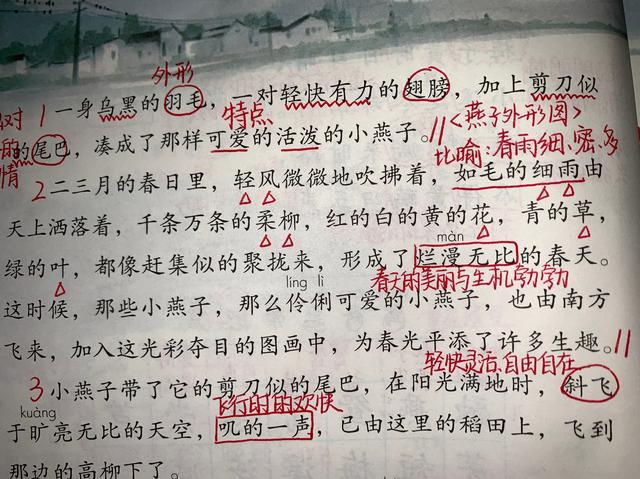 外形
1一身乌黑的羽毛,一对轻快有力的翅膀,加上剪刀似
对
特点
的尾巴,凑成了那样可爱的活泼的小燕子。//<燕子外形图>
的
情
比喻:春雨细、密、多
2二三月的春日里,轻风微微地吹拂着,如毛的细雨由
天上洒落着,千条万条的柔柳,红的白的黄的花,青的草,
màn
绿的叶,都像赶集似的聚拢来,形成了烂漫无比的春天。
春天的美丽与生机勃勃
líng lì
这时候,那些小燕子,那么伶俐可爱的小燕子,也由南方
飞来,加入这光彩夺目的图画中,为春光平添了许多生趣。//
轻快灵活、自由自在
3小燕子带了它的剪刀似的尾巴,在阳光满地时,斜飞
kuàng
飞行时的欢快
于旷亮无比的天空,叽的一声,已由这里的稻田上,飞到
那边的高柳下了。